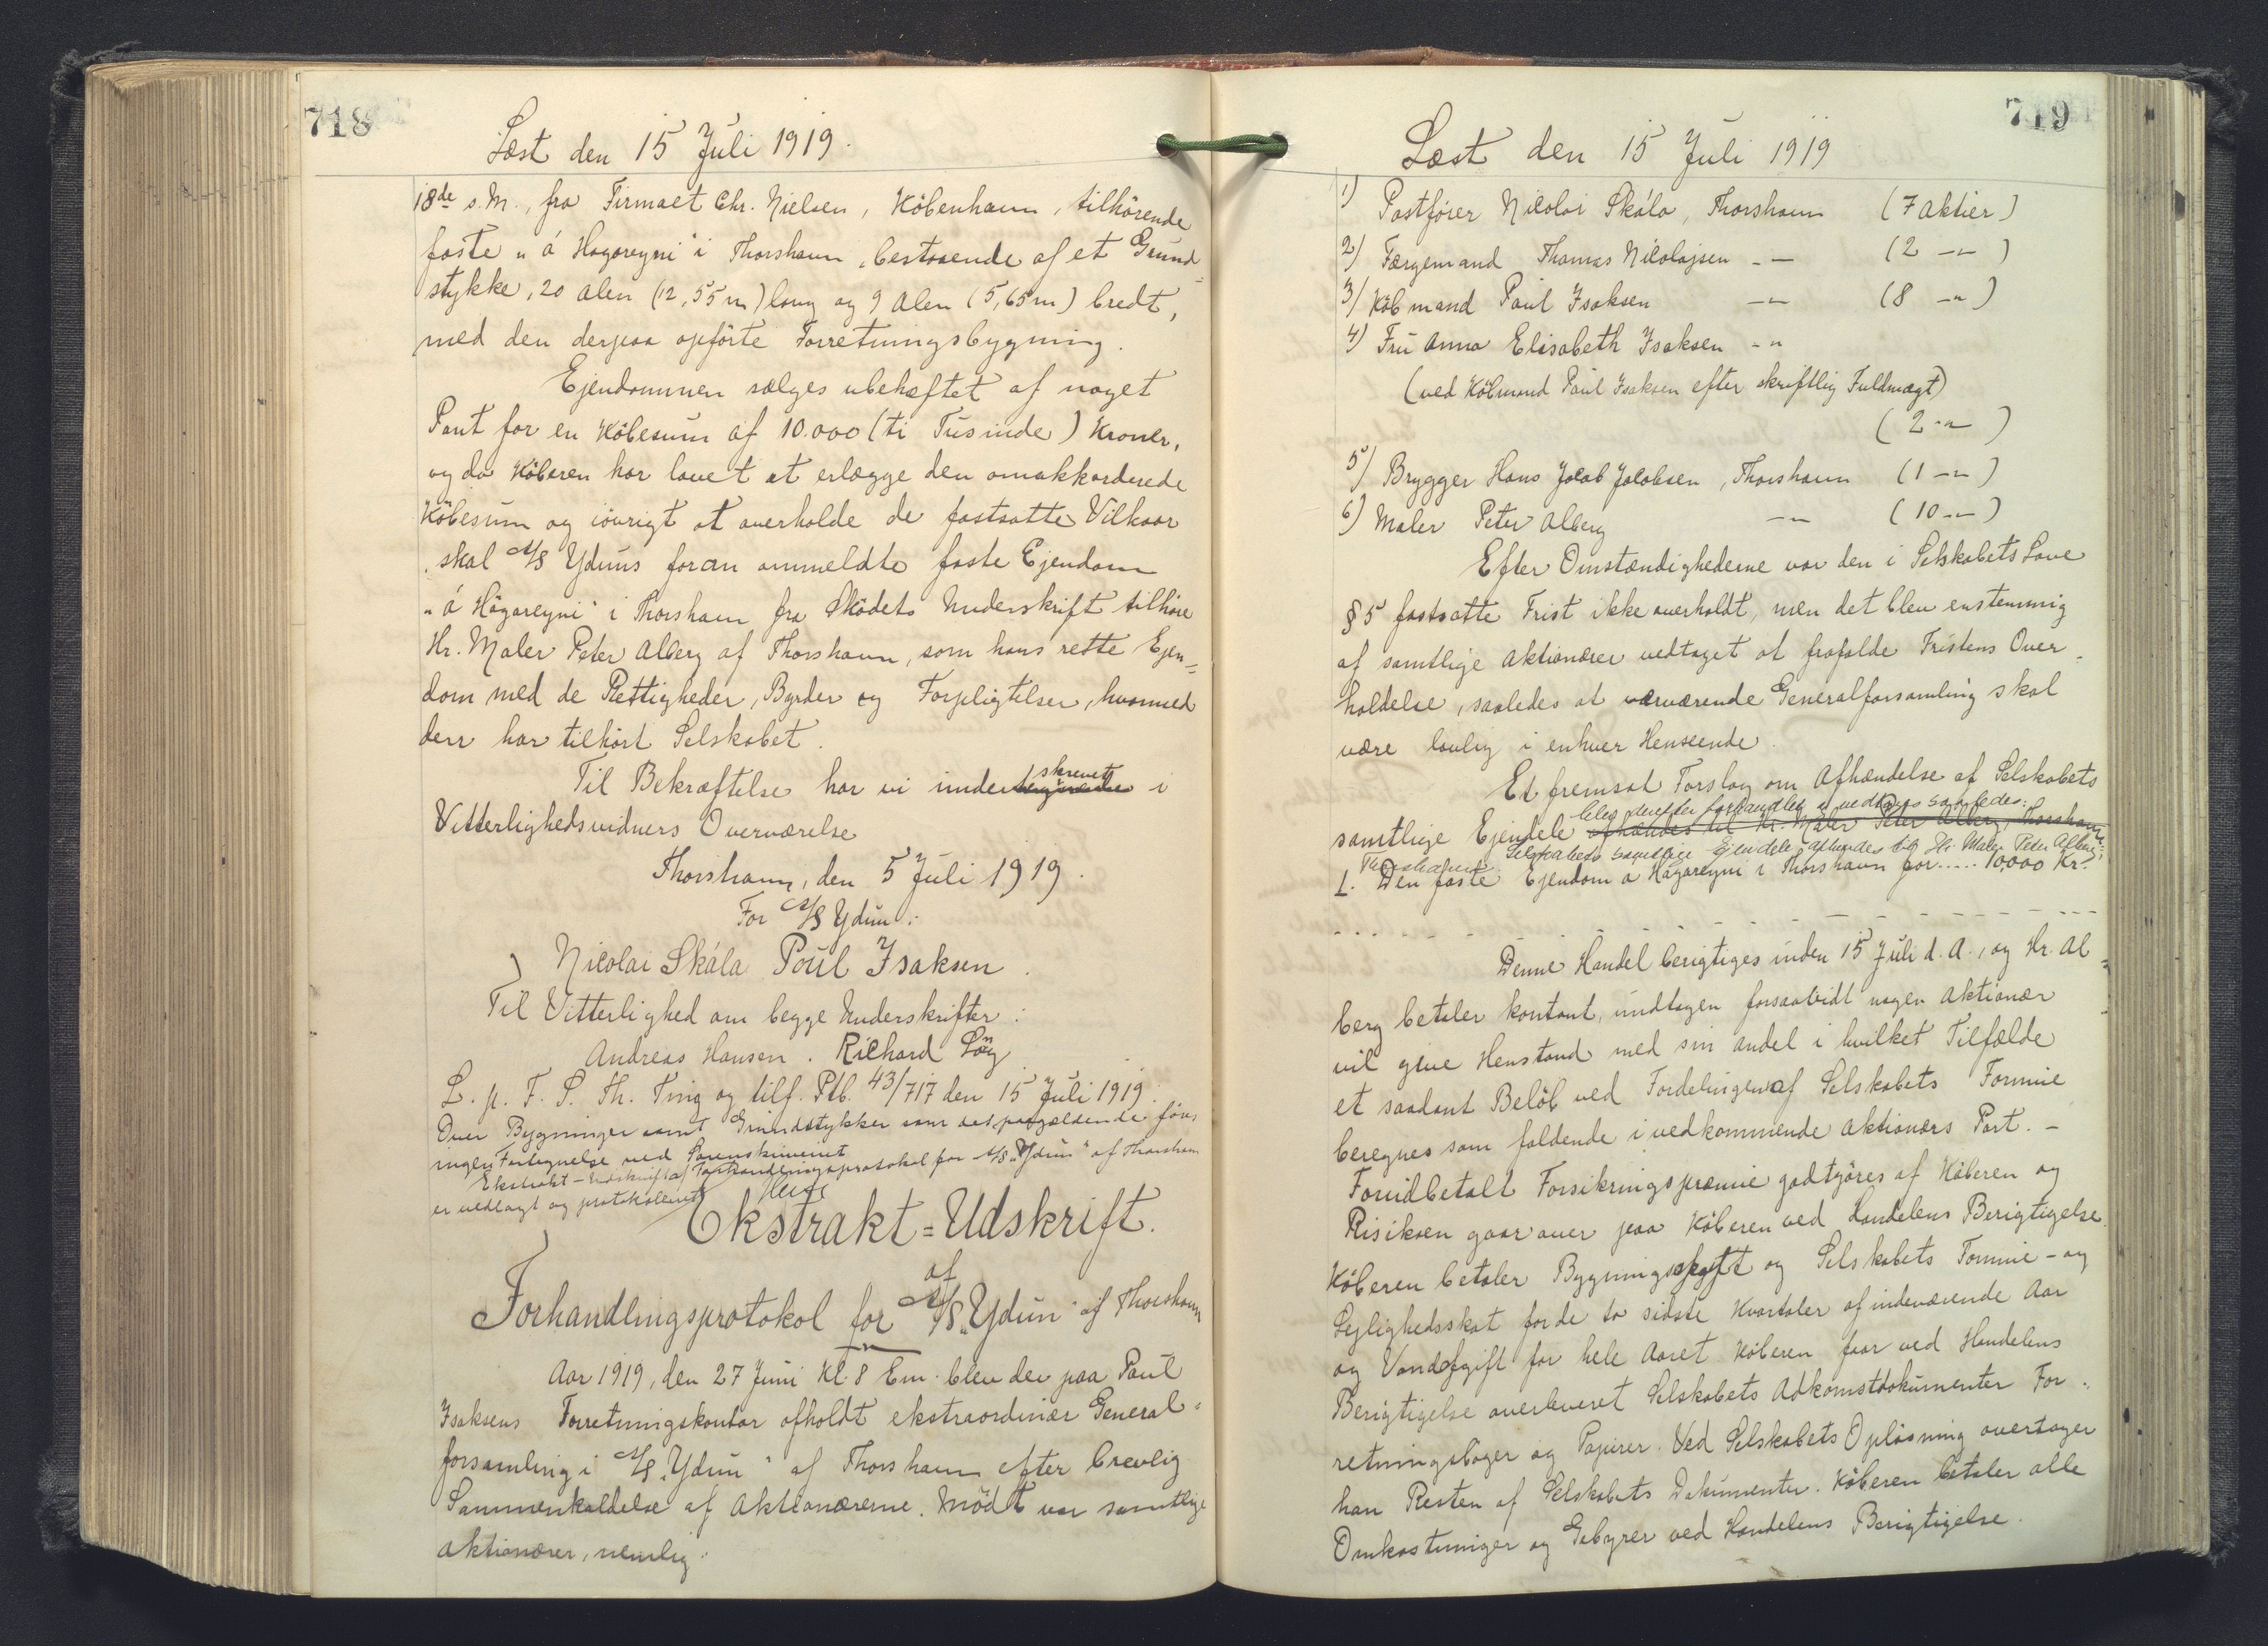 718
Læst den 15 Juli 1919.
18de s. M., fra Firmaet Chr. Nielsen, København, tilhørende
faste „á Hagareyni" i Thorshavn, bestaaende af et Grund=
stykke, 20 Alen (12,55 m) lang og 9 Alen (5,65 m) bredt,
med den derpaa opførte Forretningsbygning.
Ejendommen sælges ubehæftet af noget
Pant for en Købesum af 10.000 (ti Tusinde) Kroner,
og da Køberen har lovet at erlægge den omakkorderede
Købesum og iøvrigt at overholde de fastsatte Vilkaar
skal A/S Yduns foran ommeldte faste Ejendom
„á Hágareyni" i Thorshavn fra Skødets Underskrift tilhøre
Hr. Maler Peter Alberg af Thorshavn, som hans rette Ejen=
dom med de Rettigheder, Byrder og Forpligtelser, hvormed
den har tilhørt Selskabet.
Til Bekræftelse har vi underskrevet i
Vitterlighedsvidners Overværelse
Thorshavn, den 5 Juli 1919.
For A/S Ydun:
Nicolai Skála Poul Isaksen.
Til Vitterlighed om begge Underskrifter:
Andreas Hansen. Richard Long
L. p. F. S. Th. Ting og tilf. Ptb. 43/717 den 15 Juli 1919.
Over Bygninger samt Grundstykker som det paagældende føres
ingen Fortegnelse ved Sorenskriveriet
Ekstrakt-Udskrift af Forhandlingsprotokol for A/S „Ydun" af Thorshavn
er vedlagt og protokolleret
Ekstrakt=Udskrift.
af
Forhandlingsprotokol for A/S „Ydun" af Thorshavn
Aar 1919, den 27 Juni Kl. 8 Em. blev der paa Poul
Isaksens Forretningskontor afholdt ekstraordinær General=
forsamling i A/S „Ydun" af Thorshavn efter brevlig
Sammenkaldelse af Aktionærerne. Mødt var samtlige
Aktionærer, nemlig:
719
Læst den 15 Juli 1919
1) Postfører Nicolai Skála, Thorshavn (7 Aktier)
2) Færgemand Thomas Nikolajsen -„- (2 -„-)
3) Købmand Poul Isaksen -„- (8 -„-)
4) Fru Anna Elisabeth Isaksen -„-
(ved Købmand Poul Isaksen efter skriftlig Fuldmagt)
(2 -„-)
5) Brygger Hans Jacob Jacobsen, Thorshavn (1 -„-)
6) Maler Peter Alberg -„- (10 -„-)
Efter Omstændighederne var den i Selskabets Love
§ 5 fastsatte Frist ikke overholdt, men det blev enstemmig
af samtlige Aktionærer vedtaget at frafalde Fristens Over-
holdelse, saaledes at nærværende Generalforsamling skal
være lovlig i enhver Henseende.
Et fremsat Forslag om Afhændelse af Selskabets
blev derefter forhandlet og vedtages saaledes:
samtlige Ejendele afhændes til Hr. Maler Peter Alberg, Thorshavn
Selskabets samtlige Ejendele afhændes til Hr. Maler Peter Alberg,
Thorshavn:
1. Den faste Ejendom á Hágareyni i Thorshavn for..... 10,000 Kr.
- - - - - - - - - - - - - -
Denne Handel berigtiges inden 15 Juli d. A., og Hr. Al=
berg betaler kontant, undtagen forsaavidt nogen Aktionær
vil give Henstand med sin Andel i hvilket Tilfælde
et saadant Beløb ved Fordelingen af Selskabets Formue
beregnes som faldende i vedkommende Aktionærs Part. -
Forudbetalt Forsikringspræmie godtgøres af Køberen og
Risikoen gaar over paa Køberen ved Handelens Berigtigelse.
Køberen betaler Bygningsskatt og Selskabets Formue- og
Lejlighedsskat for de to sidste Kvartaler af indeværende Aar
og Vandafgift for hele Aaret Køberen faar ved Handelens
Berigtigelse overleveret Selskabets Adkomstdokumenter For-
retningsbøger og Papirer. Ved Selskabets Opløsning overtager
han Resten af Selskabets Dokumenter. Køberen betaler alle
Omkostninger og Gebyrer ved Handelens Berigtigelse.